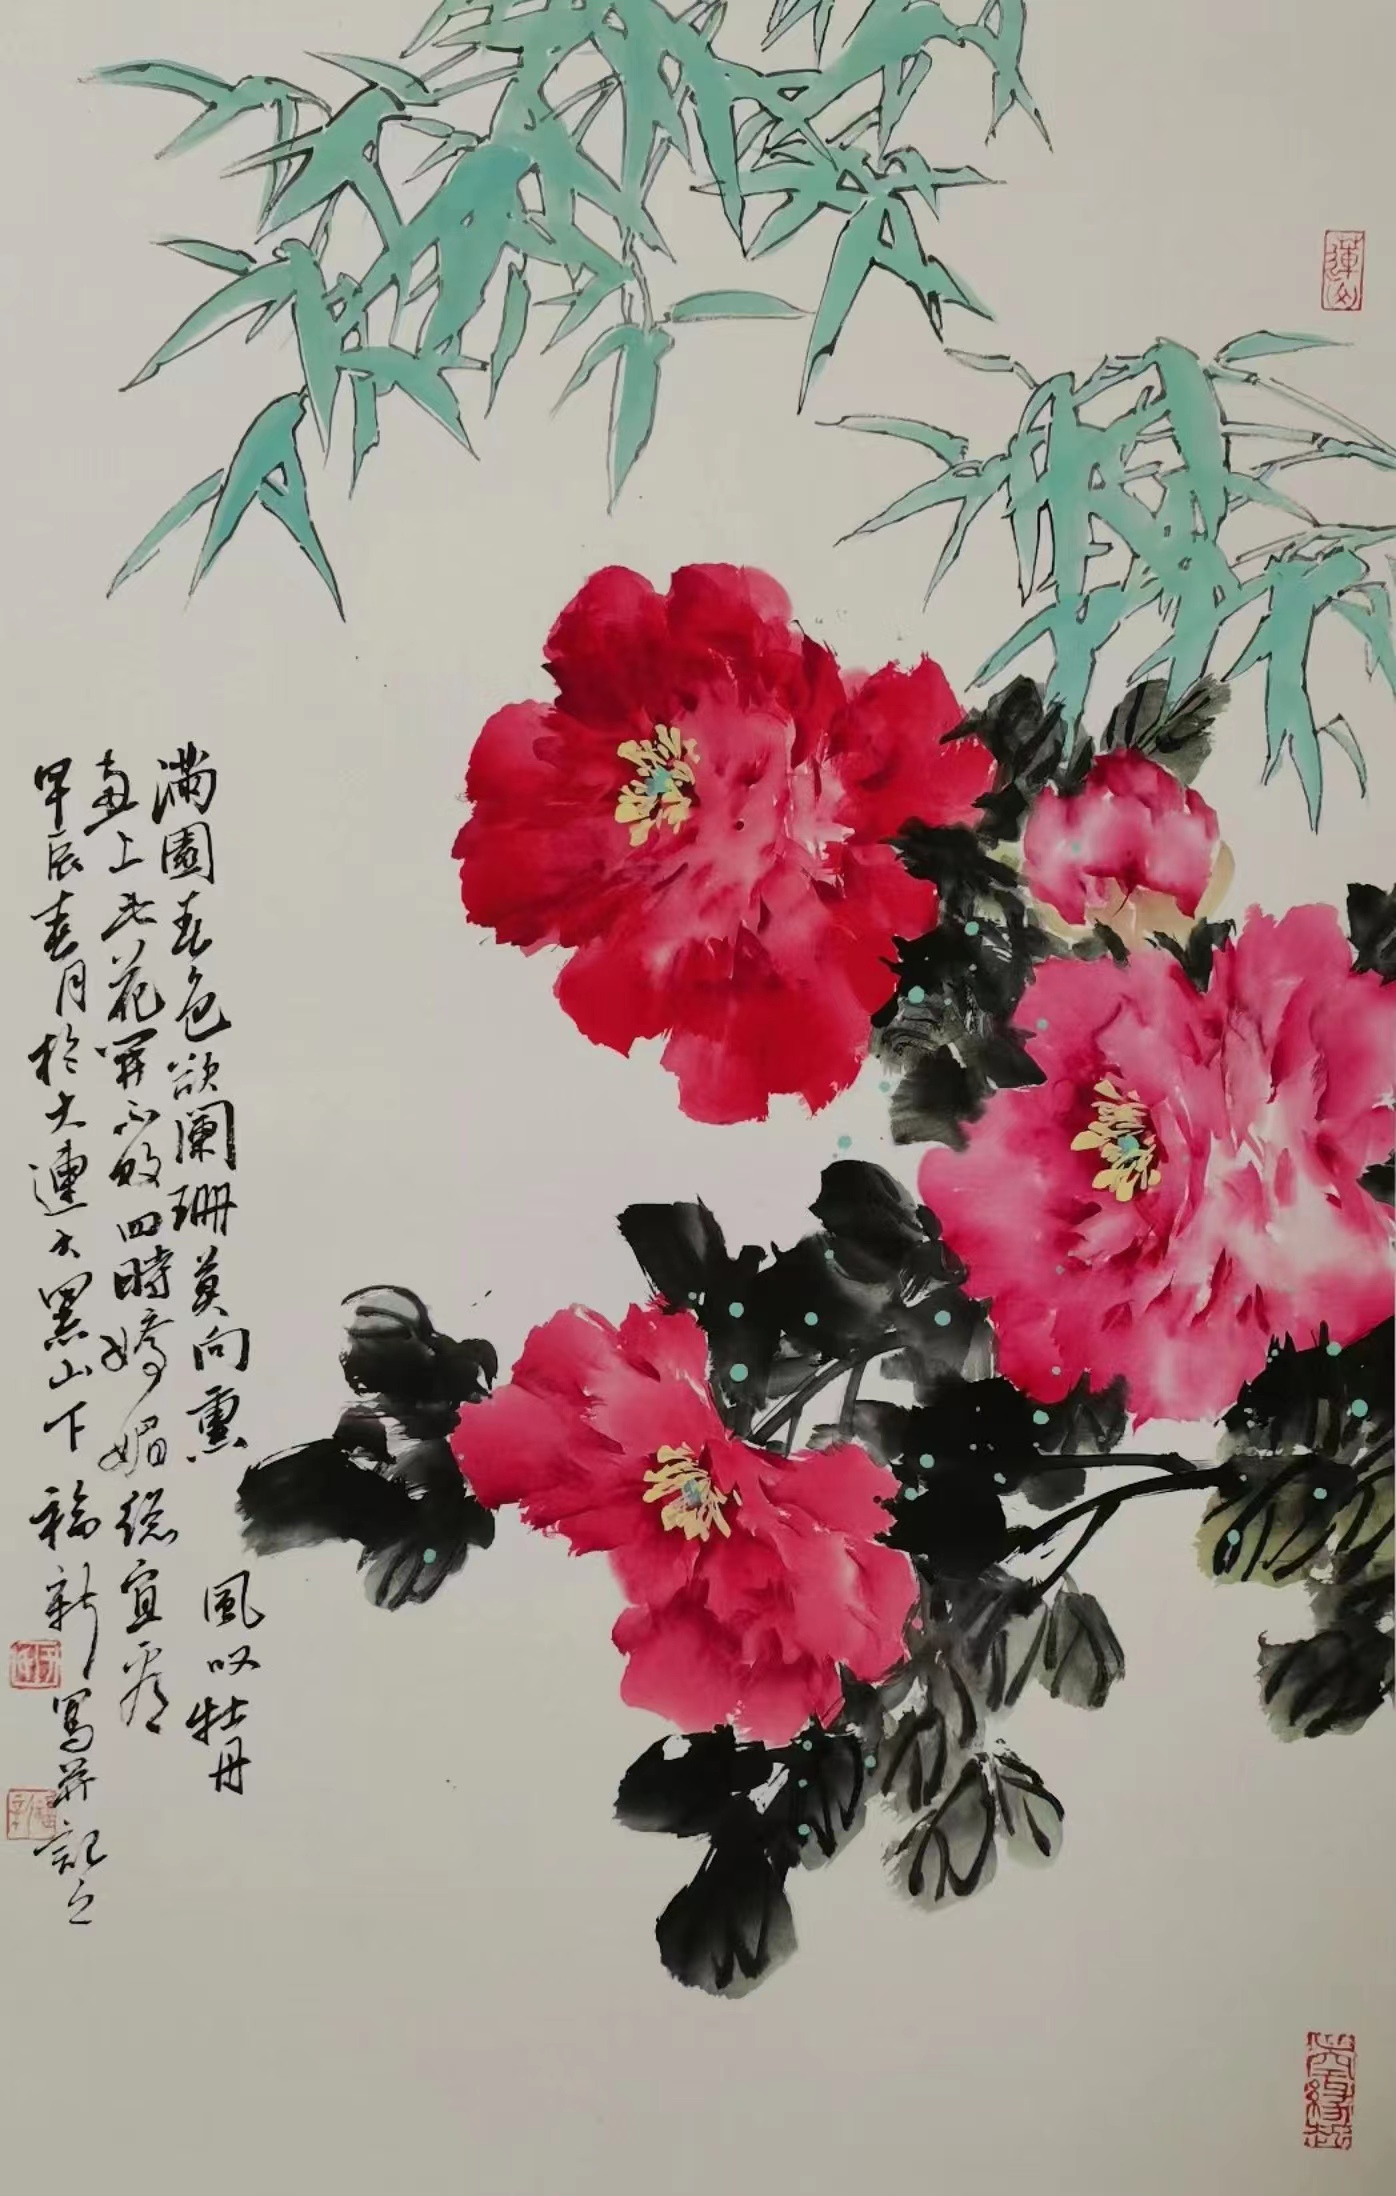 滿園春色欲闌珊莫向熏風叹牡丹
畫上此花開不敗四時嬌媚總宜看
甲辰春月於大連大黑山下福新寫并記之
福新